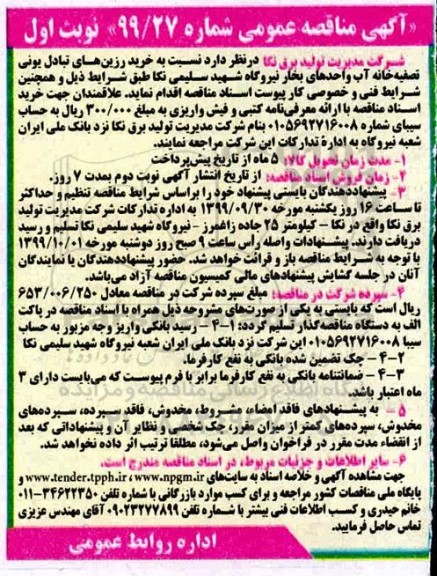 «آگهی مناقصه عمومی شماره ۹۹/۲۷» نوبت اول
شرکت مدیریت تولید برق نکا درنظر دارد نسبت به خرید رزین‌های تبادل یونی
تصفیه‌خانه آب واحدهای بخار نیروگاه شهید سلیمی نکا طبق شرایط ذیل و همچنین
شرایط فنی و خصوصی کار پیوست اسناد مناقصه اقدام نماید. علاقمندان جهت خرید
اسناد مناقصه با ارائه معرفی‌نامه کتبی و فیش واریزی به مبلغ ۳۰۰/۰۰۰ ریال به حساب
سیبای شماره ۰۱۰۵۶۹۲۷۱۶۰۰۸ بنام شرکت مدیریت تولید برق نکا نزد بانک ملی ایران
شعبه نیروگاه به اداره تدارکات این شرکت مراجعه نمایند.
۱- مدت زمان تحویل کالا: ۵ ماه از تاریخ پیش‌پرداخت
۲- زمان فروش اسناد مناقصه: از تاریخ انتشار آگهی نوبت دوم بمدت ۷ روز.
۳- پیشنهاددهندگان بایستی پیشنهاد خود را براساس شرایط مناقصه تنظیم و حداکثر
تا ساعت ۱۶ روز یکشنبه مورخه ۱۳۹۹/۰۹/۳۰ به اداره تدارکات شرکت مدیریت تولید
برق نکا واقع در نکا - کیلومتر ۲۵ جاده زاغمرز - نیروگاه شهید سلیمی نکا تسلیم و رسید
دریافت دارند. پیشنهادات واصله رأس ساعت ۹ صبح روز دوشنبه مورخه ۱۳۹۹/۱۰/۰۱
با توجه به شرایط مناقصه باز و قرائت خواهد شد. حضور پیشنهاددهندگان یا نمایندگان
آنان در جلسه گشایش پیشنهادهای مالی کمیسیون مناقصه آزاد می‌باشد.
۴- سپرده شرکت در مناقصه: مبلغ سپرده شرکت در مناقصه معادل ۶۵۳/۰۰۶/۲۵۰
ریال است که بایستی به یکی از صورت‌های مشروحه ذیل همراه با اسناد مناقصه در پاکت
الف به دستگاه مناقصه‌گذار تسلیم گردد: ۱-۴- رسید بانکی واریز وجه مزبور به حساب
سیبا ۰۱۰۵۶۹۲۷۱۶۰۰۸ این شرکت نزد بانک ملی ایران شعبه نیروگاه شهید سلیمی نکا
۲-۴- چک تضمین شده بانکی به نفع کارفرما.
۳-۴- ضمانتنامه بانکی به نفع کارفرما برابر با فرم پیوست که می‌بایست دارای ۳
ماه اعتبار باشد.
۵- به پیشنهادهای فاقد امضاء، مشروط، مخدوش، فاقد سپرده، سپرده‌های
مخدوش، سپرده‌های کمتر از میزان مقرر، چک شخصی و نظایر آن و پیشنهاداتی که بعد
از انقضاء مدت مقرر در فراخوان واصل می‌شود، مطلقا ترتیب اثر داده نخواهد شد.
۶- سایر اطلاعات و جزئیات مربوط، در اسناد مناقصه مندرج است.
جهت مشاهده آگهی و خلاصه اسناد به سایت‌های www.npgm.ir، www.tender.tpph.ir و
پایگاه ملی مناقصات کشور مراجعه و برای کسب موارد بازرگانی با شماره تلفن ۳۴۶۲۲۳۵۰-۰۱۱
خانم حیدری و کسب اطلاعات فنی بیشتر با شماره تلفن ۰۹۰۲۳۲۷۷۸۹۹ آقای مهندس عزیزی
تماس حاصل فرمایید.
اداره روابط عمومی